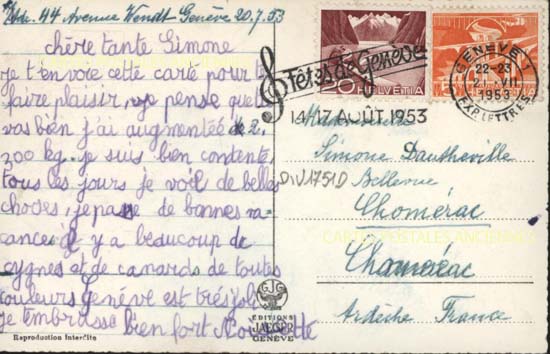 Adr. 44 Avenue Wendt Genève 20.7.53
chère tante Simone
je t'envoie cette carte pour te
faire plaisir, je pense que tu
vas bien j'ai augmentée de 2,
200 kg. je suis bien contente,
tous les jours je voil de belles
chodes, je passe de bonnes va-
cances il y a beaucoup de
cygnes et de canards de toutes
couleurs Genève est très joli
je t'embrasse bien fort
Reproduction interdite
EDITIONS
JAEGER
GENÈVE
20 HELVETIA
Fêtes de Genève
14-17 AOÛT 1953
GENÈVE 1
22-23
VII
1953
EXP. LETTRES
Simone Dautheville
DIV1751D
Bellevue
Chomérac
CARTES POSTALES ANCIENNES
Chomérac
Ardèche France